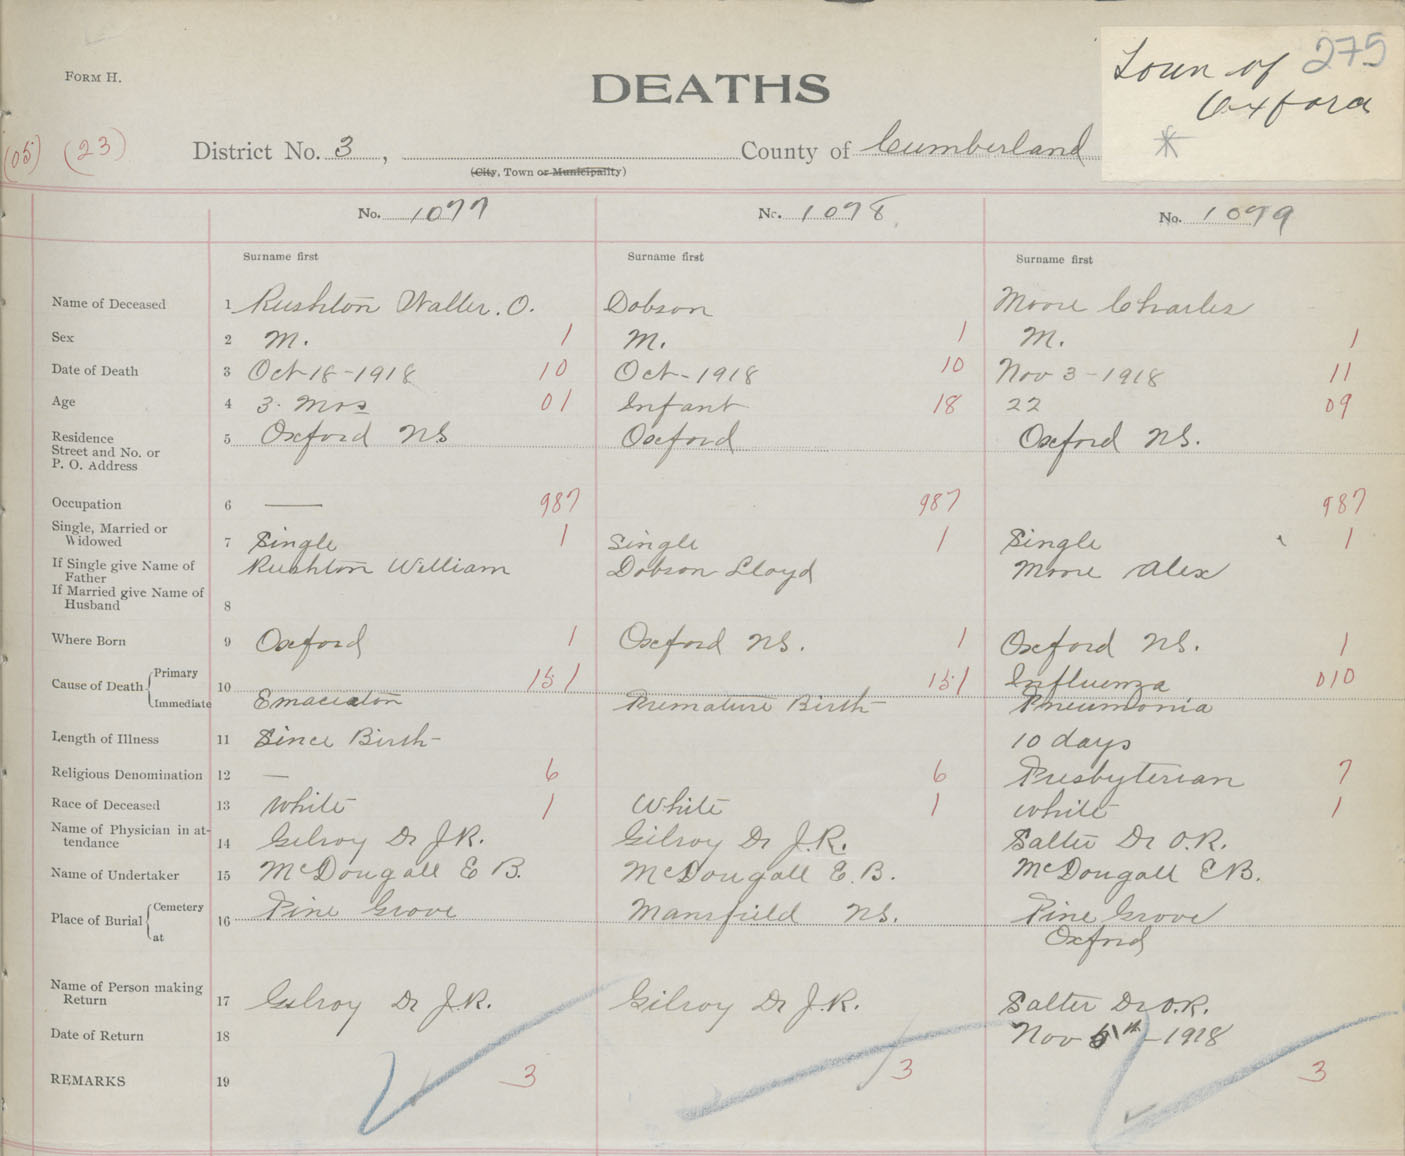 Town of 275
Oxford
*
FORM H.
DEATHS
(05) (23)
District No. 3, County of Cumberland
(City, Town or Municipality)
No. 1077 No. 1078 No. 1079
Surname first Surname first Surname first
Name of Deceased 1 Rushton Walter. O. Dobson Moore Charles
Sex 2 M. 1 M. 1 M. 1
Date of Death 3 Oct 18-1918 10 Oct-1918 10 Nov 3-1918 11
Age 4 3 Mos 01 Infant 18 22 09
Residence
Street and No. or
P. O. Address 5 Oxford NS Oxford Oxford NS.
Occupation 6 — 987 987 987
Single, Married or
Widowed 7 Single 1 Single 1 Single 1
If Single give Name of
Father Rushton William Dobson Lloyd Moore Alex
If Married give Name of
Husband 8
Where Born 9 Oxford 1 Oxford NS. 1 Oxford NS. 1
Cause of Death Primary 10 151 151 Influenza 010
Immediate Emaciaton Premature Birth Pneumonia
Length of Illness 11 Since Birth 10 days
Religious Denomination 12 — 6 6 Presbyterian 7
Race of Deceased 13 White 1 White 1 White 1
Name of Physician in at-
tendance 14 Gilroy Dr J.R. Gilroy Dr J.R. Salter Dr O.R.
Name of Undertaker 15 McDougall E B. McDougall E.B. McDougall E.B.
Place of Burial Cemetery 16 Pine Grove Mansfield NS. Pine Grove
at Oxford
Name of Person making
Return 17 Gilroy Dr J.R. Gilroy Dr J.R. Salter Dr O.R.
Date of Return 18 Nov 5th-1918
REMARKS 19 3 3 3